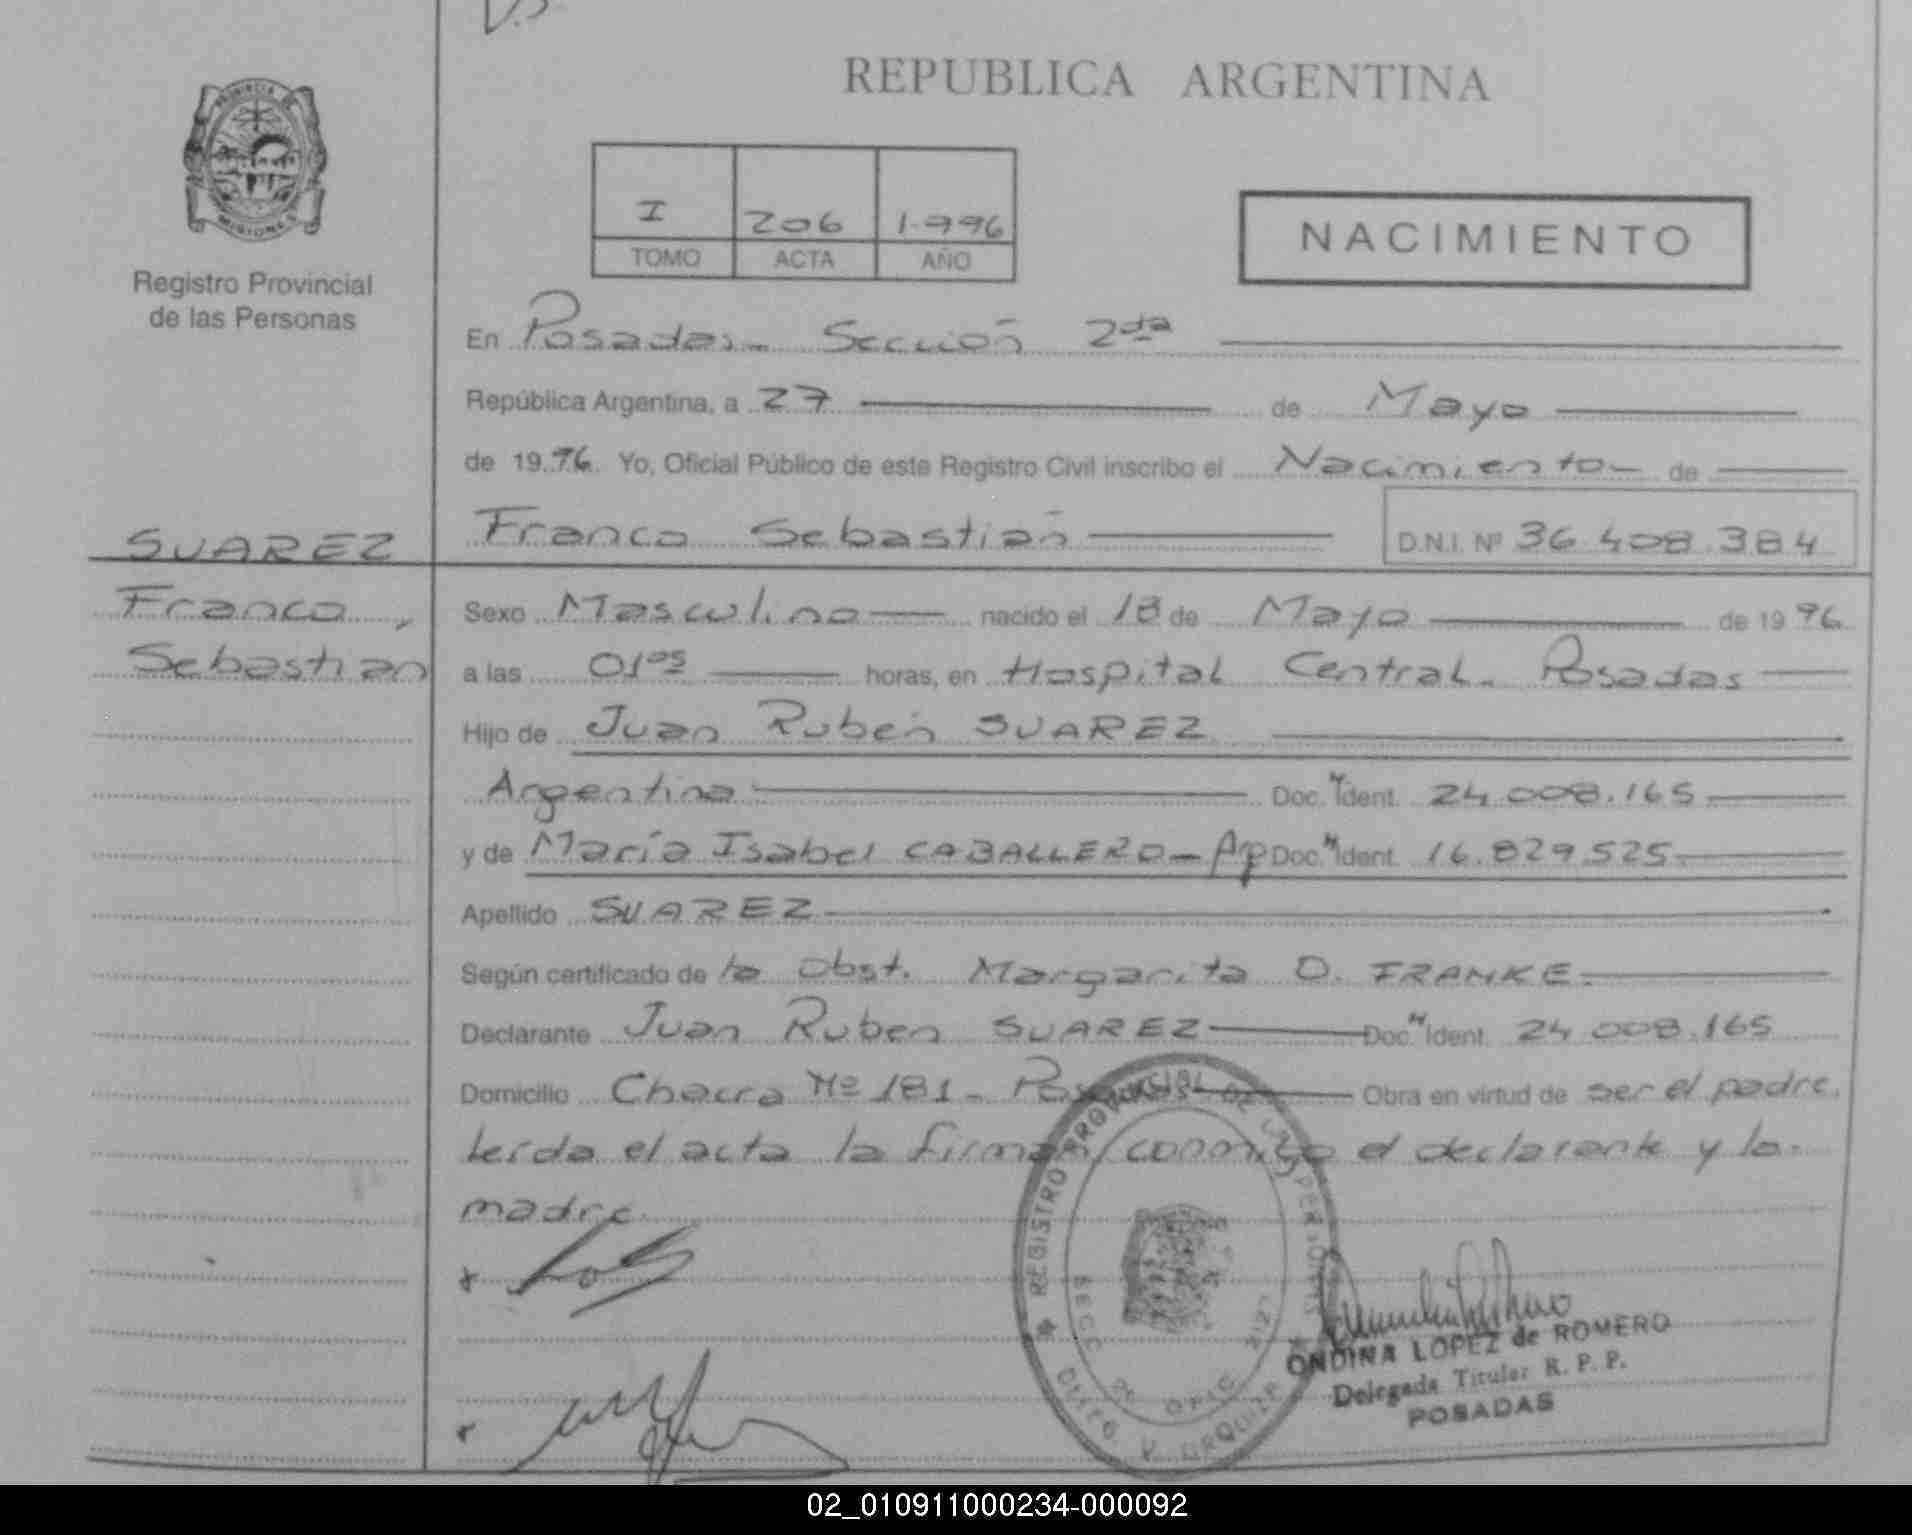 REPUBLICA ARGENTINA
PROVINCIA DE
MISIONES
Registro Provincial
de las Personas
I 206 1.996
TOMO ACTA AÑO
NACIMIENTO
En Posadas - Sección 2da
República Argentina, a 27 de Mayo
de 1996. Yo, Oficial Público de este Registro Civil inscribo el Nacimiento de
Franco Sebastián D.N.I. Nº 36 408 384
SUAREZ
Franco,
Sebastian
Sexo Masculino nacido el 18 de Mayo de 1996
a las 01 05 horas, en Hospital Central - Posadas
Hijo de Juan Rubén SUAREZ
Argentina Doc. Ident. 24.008.165
y de María Isabel CABALLERO - Arg Doc. Ident. 16.829.525
Apellido SUAREZ
Según certificado de la Obst. Margarita O. FRANKE.
Declarante Juan Ruben SUAREZ Doc. Ident. 24 008.165
Domicilio Chacra Nº 181 - Posadas Obra en virtud de ser el padre.
leída el acta la firman conmigo el declarante y la
madre.
REGISTRO PROVINCIAL DE LAS PERSONAS
SECC 2ª OFIC
URQUIZA
ONDINA LOPEZ de ROMERO
Delegada Titular R. P. P.
POSADAS
02_010911000234-000092